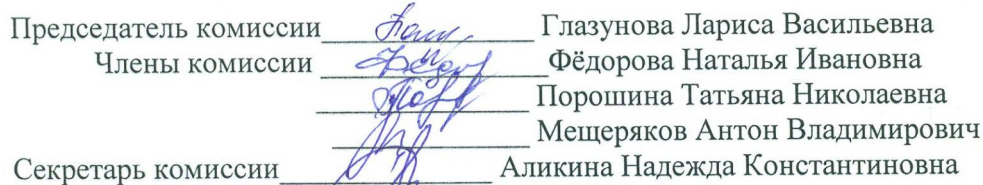 Председатель комиссии Глазунова Лариса Васильевна
Члены комиссии Фёдорова Наталья Ивановна
Порошина Татьяна Николаевна
Мещеряков Антон Владимирович
Секретарь комиссии Аликина Надежда Константиновна